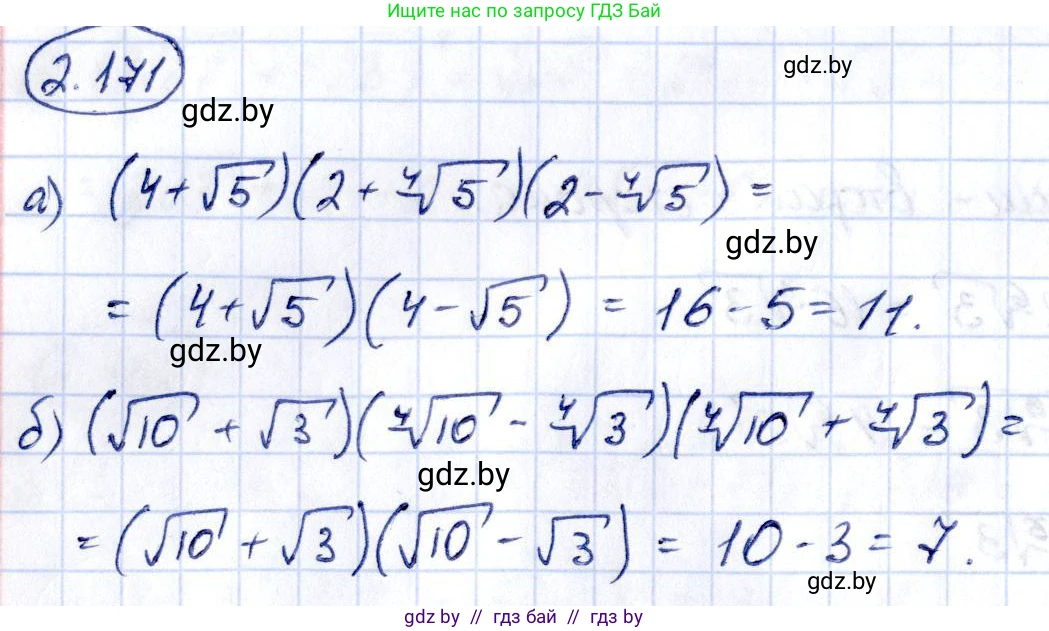 Ищите нас по запросу ГДЗ Бай
2.171
gdz.by
gdz.by
а) (4+√5)(2+∜5)(2-∜5) =
gdz.by
= (4+√5)(4-√5) = 16-5=11.
gdz.by
б) (√10 + √3)(∜10 - ∜3)(∜10 + ∜3) =
gdz.by
= (√10 + √3)(√10 - √3) = 10-3= 7.
gdz.by
gdz.by // гдз бай // гдз by